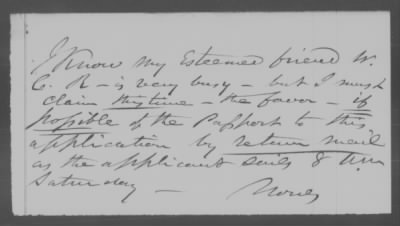 I Know my Esteemed friend W.
C. R – is very busy – but I must
claim this time – the favor – if
possible of the Passport to this
application by return mail
as the applicant sails 8 a.m
Saturday –